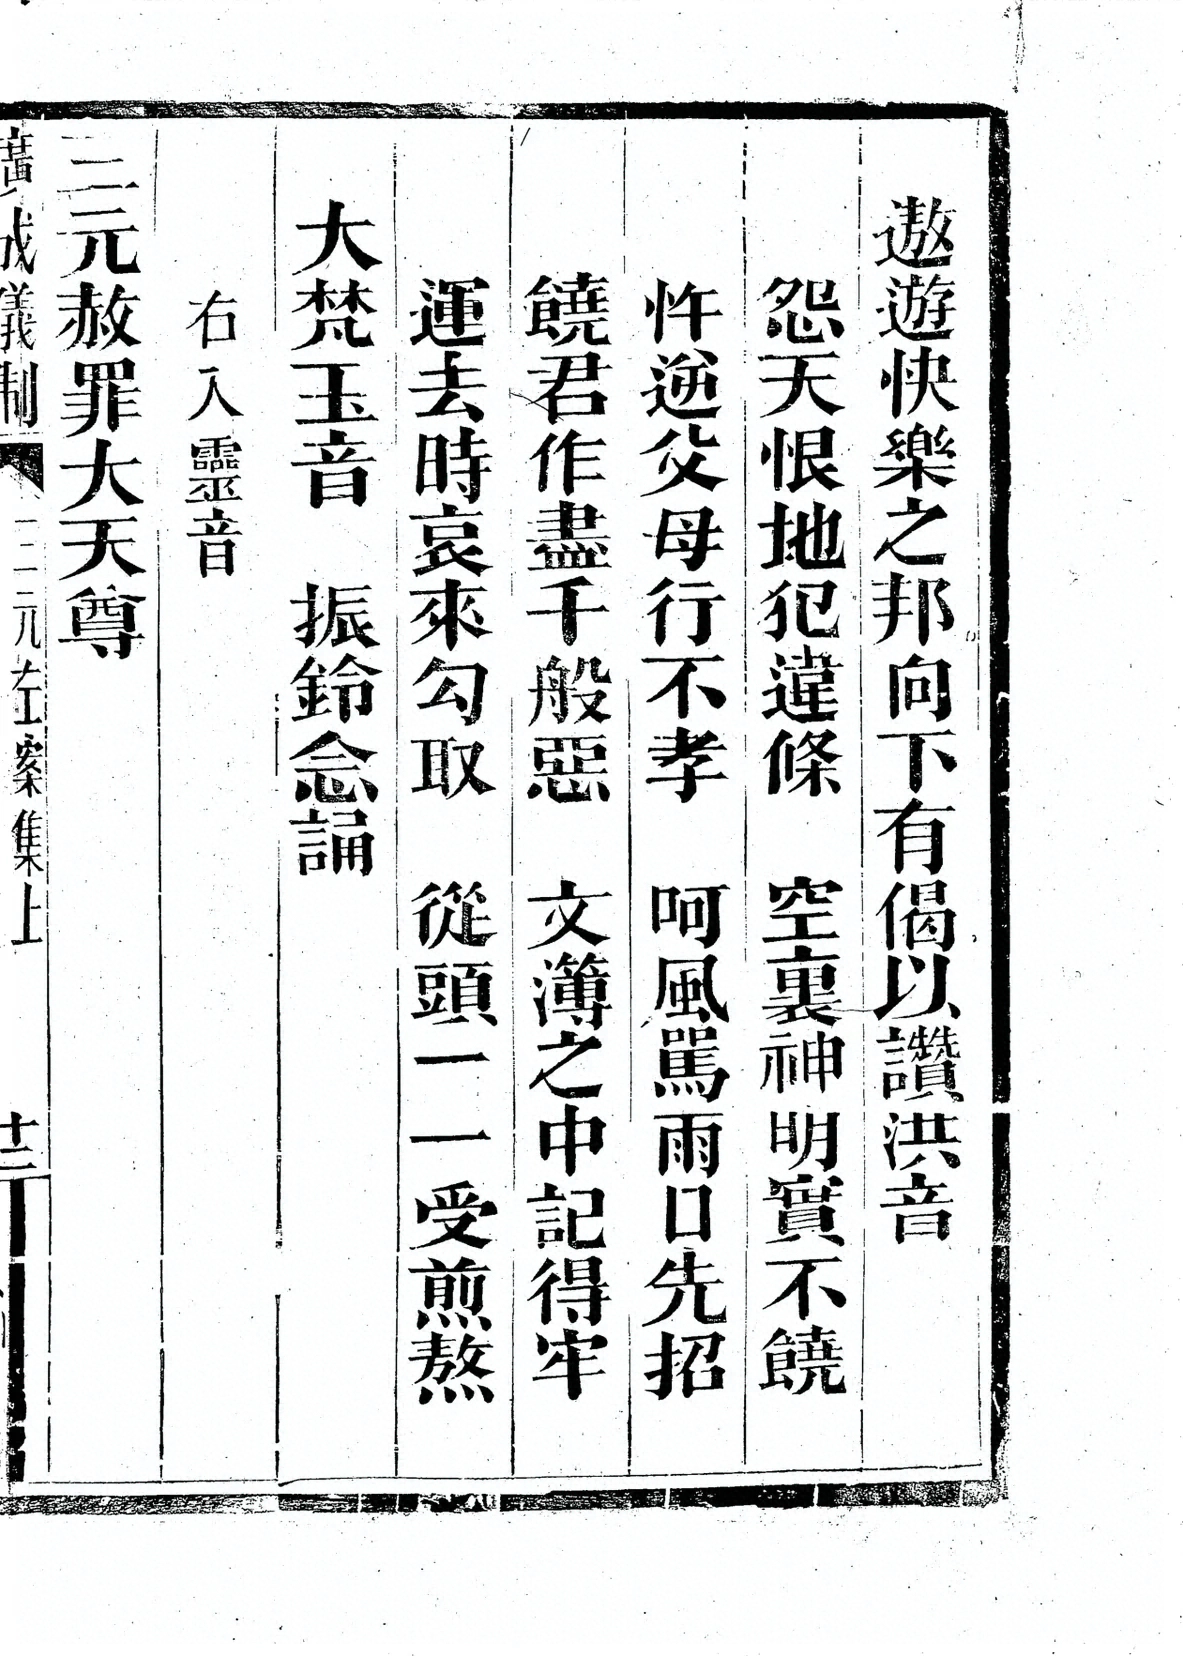 遨遊快樂之邦向下有偈以讚洪音
怨天恨地犯違條　空裏神明實不饒
忤逆父母行不孝　呵風駡雨口先招
饒君作盡千般惡　文薄之中記得牢
運去時哀來勾取　從頭一一受煎熬
大梵玉音　振鈴念誦
右入靈音
三元赦罪大天尊
廣成儀制　三元左案集上　十三